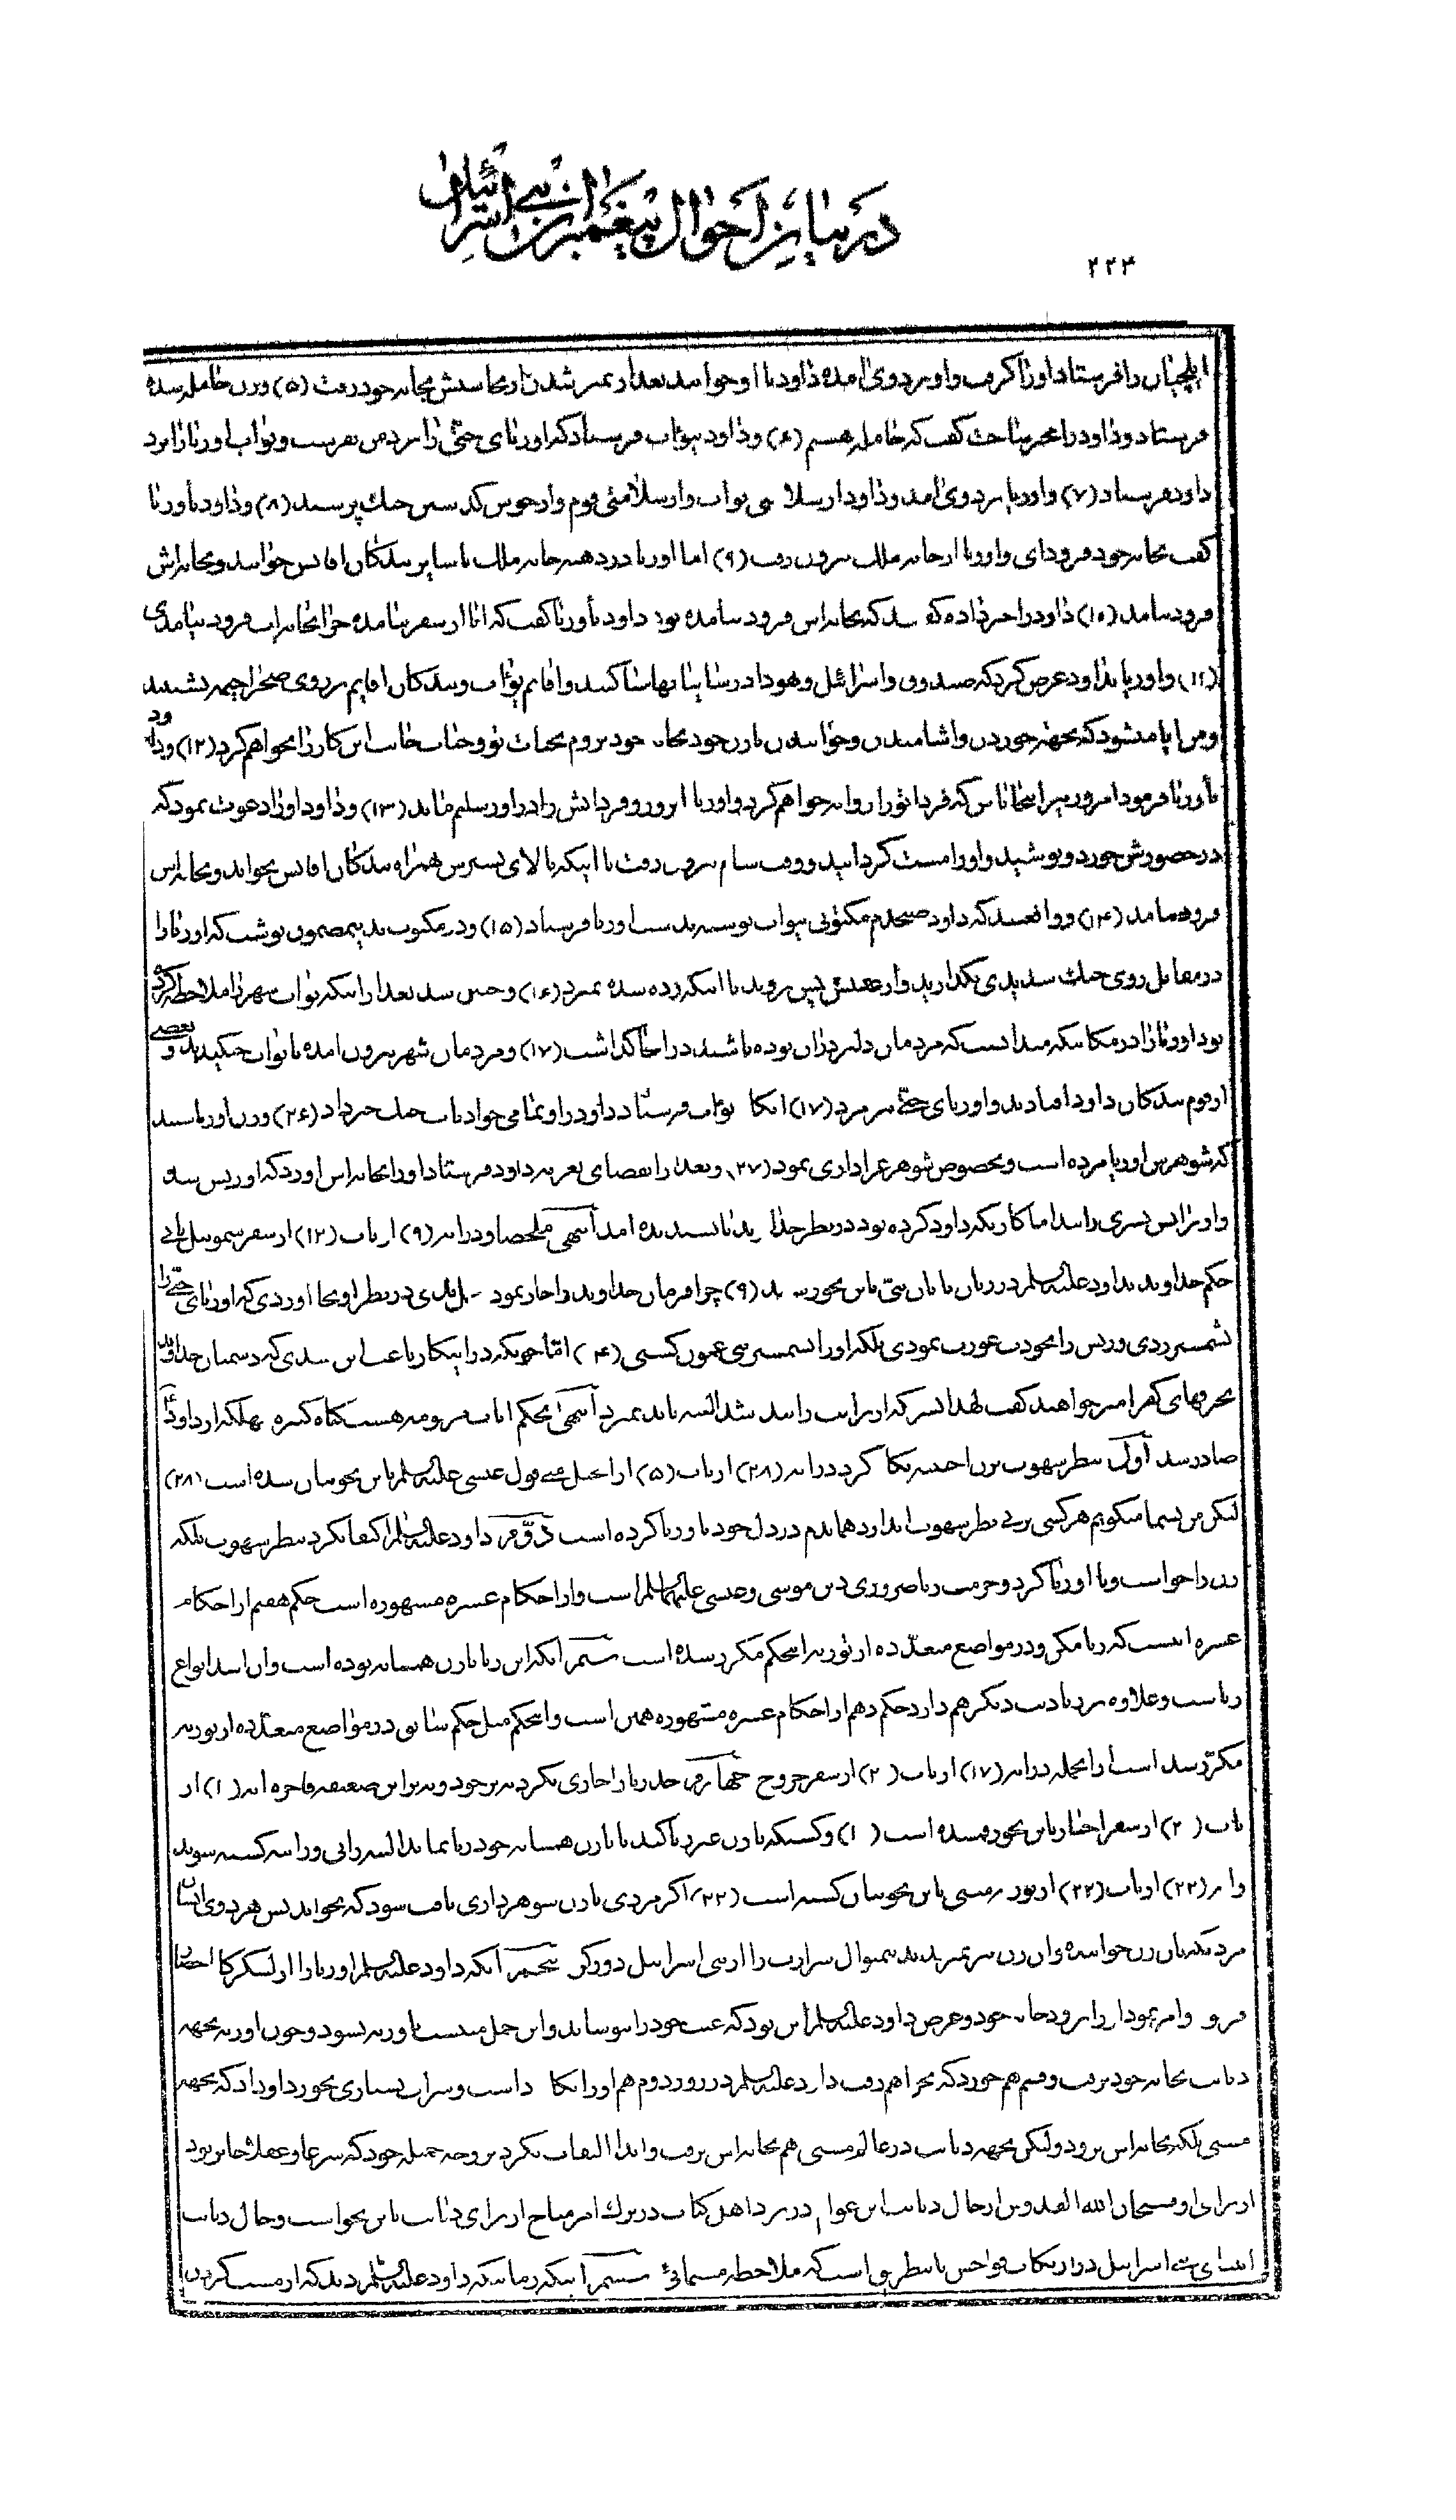 در بیان احوال پیغمبران بنی اسرائیل
۲۲۴
ایلچیان را فرستاد اورا گرفت و او بنزد وی آمده داود با او خوابید بعد از تمیز شدن از نجاستش بخانه خود رفت (۵) وزن حامله شده
فرستاد و داود را مخبر ساخت گفت که حامله هستم (۶) و داود بیواب فرستاد که اوریای حتی را بنزد من بفرست و یواب اوریا را نزد
داود فرستاد (۷) و اوریا بنزد وی آمد و داود از سلامتی یواب و از سلامتی قوم و از خوش گذشتن جنك پرسید (۸) و داود باوریا
گفت بخانه خود فرود آی و اوریا از خانه ملك بیرون رفت (۹) اما اوریا در دهنه خانه ملك با سایر بندکان اقایش خوابید و بخانه‌اش
فرود نیامد (۱۰) داود را خبر داده گفتند که بخانه‌اش فرود نیامده بود داود باوریا گفت که ایا از سفر نیامده چرا بخانه‌ات فرود نیامدی
(۱۱) و اوریا بداود عرض کرد که صندوق و اسرائیل و یهودا در سایبانها ساکنند و اقایم یواب و بندکان اقایم بر روی صحرا خیمه نشینند
و مرا ایا میشود که بجهة خوردن و اشامیدن و خوابیدن با زن خود بخانه خود بروم بحیات تو و حیات جانت این کار را نخواهم کرد (۱۲) و داود
باوریا فرمود امروز نیز اینجا باش که فردا تو را روانه خواهم کرد و اوریا انروز و فردایش را در اورشلیم ماند (۱۳) و داود او را دعوت نمود که
در حضورش خورد و نوشید و اورا مست کردانید و وقت شام بیرون رفت تا اینکه بالای بسترش همراه بندکان اقایش بخوابد و بخانه‌اش
فرود نیامد (۱۴) و واقع شد که داود صبحدم مکتوبی بیواب نوشته بدست اوریا فرستاد (۱۵) و در مکتوب بدینمضمون نوشت که اوریا را
در مقابل روی جنك شدیدی بگذارید و از عقبش پس بروید تا اینکه زده شده بمیرد (۱۶) و چنین شد بعد از اینکه یواب شهر را ملاحظه کرده
بود اوریا را در مکانیکه میدانست که مردمان دلیر در آن بوده باشند در انجا گذاشت (۱۷) و مردمان شهر بیرون امده با یواب جنگیدند و بعضی
از قوم بندکان داود افتادند و اوریای حتی نیز مرد (۱۷) انگاه یواب فرستاد داود را از تمامی حوادثات جنك خبر داد (۲۶) وزن اوریا شنید
که شوهرش اوریا مرده است و بخصوص شوهر عزاداری نمود (۲۷) و بعد از انقضای تعزیه داود فرستاد اورا بخانه‌اش اورد که او زنش شده
و او برایش پسری زائید اما کاریکه داود کرده بود در نظر خدا ناپسندیده امد انتهی ملخصا و در آیه (۹) از باب (۱۲) از سفر سموئیل ثانی
حکم خداوند بداود علیه السلم در زبان ناثان نبی باین نحو رسید (۹) چرا فرمان خداوند را خوار نمودی بدی در نظر او بجا اوردی که اوریای حتی را
بشمشیر زدی و زنش را بخودت عورت نمودی بلکه اورا بشمشیر بنی عمون کشتی (۱۴) اما چونکه در اینکار باعث این شدی که دشمنان خداوند
بحرفهای کفرامیز خواهند گفت لهذا پسر که از برایت زائیده شد البته باید بمیرد انتهی بحکم ایات مرقومه هشت گناه کبیره مهلکه از داود
صادر شد اول بنظر شهوت بزن اجنبیه نگاه کرد در آیه (۲۸) از باب (۵) از انجیل متی قول عیسی علیه السلم باین نحو بیان شده است (۲۸)
لیکن من بشما میگویم هر کسی بزنی نظر شهوت اندازد هماندم در دل خود با او زنا کرده است دوم داود علیه السلم اکتفا نکرد بنظر شهوت بلکه
زن را خواست و با او زنا کرد و حرمت زنا ضروری دین موسی و عیسی علیهما السلم است و از احکام عشره مشهوره است حکم هفتم از احکام
عشره اینست که زنا مکن و در مواضع متعدده از توریة اینحکم مکرر شده است سیم انکه این زنا با زن همسایه بوده است و این اشد انواع
زناست و علاوه بر زنا ذنب دیگر هم دارد حکم دهم از احکام عشره مشهوره همین است و اینحکم مثل حکم سابق در مواضع متعدده از توریة
مکرر شده است از انجمله در آیه (۱۷) از باب (۲۰) از سفر خروج چهارم حد زنا را جاری نکرد نه بر خود و نه بر این ضعیفه فاجره آیه (۱۰) از
باب (۲۰) از سفر احبار باین نحو رقم شده است (۱۰) و کسیکه با زن غیر زنا کند با زن همسایه خود زنا نماید البته زانی و زانیه کشته شوند
و آیه (۲۲) از باب (۲۲) از توریة مثنی باین نحو بیان کشته است (۲۲) اگر مردی با زن شوهرداری یافت شود که بخوابد پس هر دوی ایشان
مردیکه بان زن خوابیده و ان زن نیز بمیرند بدینمنوال شرارت را از بنی اسرائیل دور کن پنجم انکه داود علیه السلم اوریا را از لشکرگاه احضار
فرمود و امر نمود او را برود خانه خود و غرض داود علیه السلم این بود که عیب خود را بپوشاند و این حمل منسوب باوریا بشود و چون اوریا بجهة
دیانت بخانه خود نرفت و قسم هم خورد که نخواهم رفت داود علیه السلم در روز دوم هم اورا نگاه داشت و شراب بسیاری بخورد او داد که بجهة
مستی بلکه بخانه‌اش برود ولیکن بجهة دیانت در عالم مستی هم بخانه‌اش نرفت و ابدا التفات نکرد بزوجه جمیله خود که شرعا و عقلا جایز بود
از برای او سبحان الله القدوس از حال دیانت این عوام در نزد اهل کتاب در ترك امر مباح از برای دیانت باین نحو است و حال دیانت
انبیای بنی اسرائیل در ارتکاب فواحش باینطریق است که ملاحظه مینمائی ششم اینکه زمانیکه داود علیه السلم دید که از مست کردن